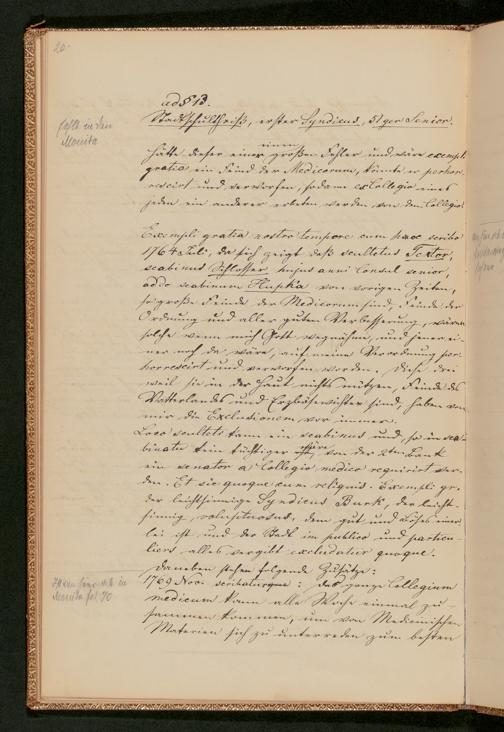 20.
ad § 13.
Stadtschultheiß, erster Syndicus, 51ger Senior.
fehlt in den
Monita
einen
Hätte dieser einen großen Fehler und wäre exempli
gratia ein Feind der Medicorum, könnte er perhor-
rescirt und verworfen, sodann ex Collegio eines
jeden ein anderer erbeten werden von dem Collegio.
Exempli gratia nostro tempore cum haec scribo
1764 Juli, da sich zeigt daß scultetus Textor,
scabinus Schlosser hujus anni Consul senior,
adde scabinum Hupka von vorigen Zeiten,
so große Feinde der Medicorum sind, Feinde der
Ordnung und aller guten Verbesserung, wären
solche wenn mich Gott wegnähme, und jener ei-
ner noch da wäre, auf meine Verordnung per-
horrescirt und verworfen werden. Diese drei
weil sie in der Haut nichts nützen, Feinde des
Vatterlandes und Erzbösewichter sind, haben von
mir die Exclusionem vor immer.
Loco sculteti kann ein scabinus und, so in sca-
binatu kein tüchtiger wäre, von der 2ten Bank
ein senator a Collegio medico requirirt wer-
den. Et sic quoque cum reliquis. Exempli gr.
der leichsinnige Syndicus Burk, der leicht-
sinnig, voluptuosus, dem gut und böses einer-
lei ist und der Stadt im publico und particu-
liers alles vergibt excludatur quoque.
Daneben stehen folgende Zusätze:
1769 Nov. scribaturque: das ganze Collegium
medicum kann alle Woche einmal zu-
sammen kommen, um von Medicinischen
Materien sich zu unterreden zum besten
Monita fol 70